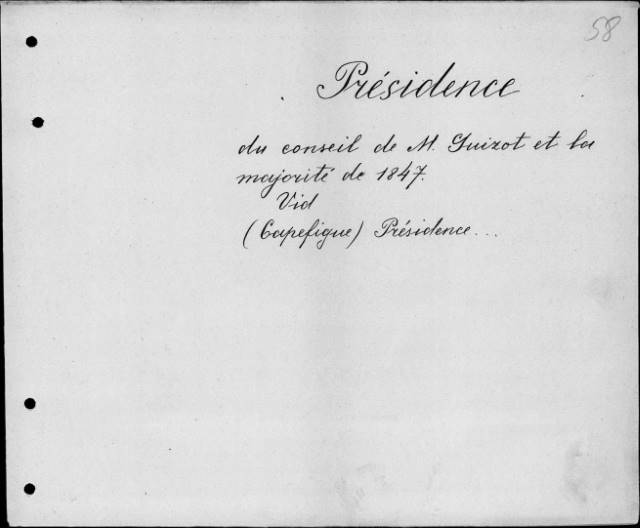 58
Présidence
du conseil de M. Guizot et la
majorité de 1847.
Vid
(Capefigue) Présidence...